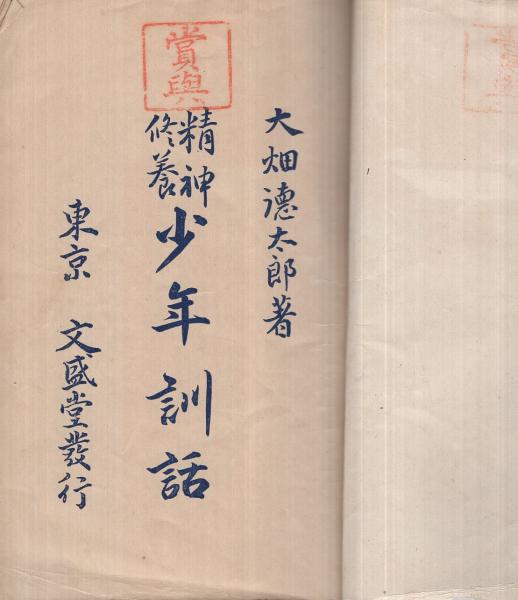 大畑德太郎著
精神
修養
少年訓話
東京 文盛堂發行
賞與